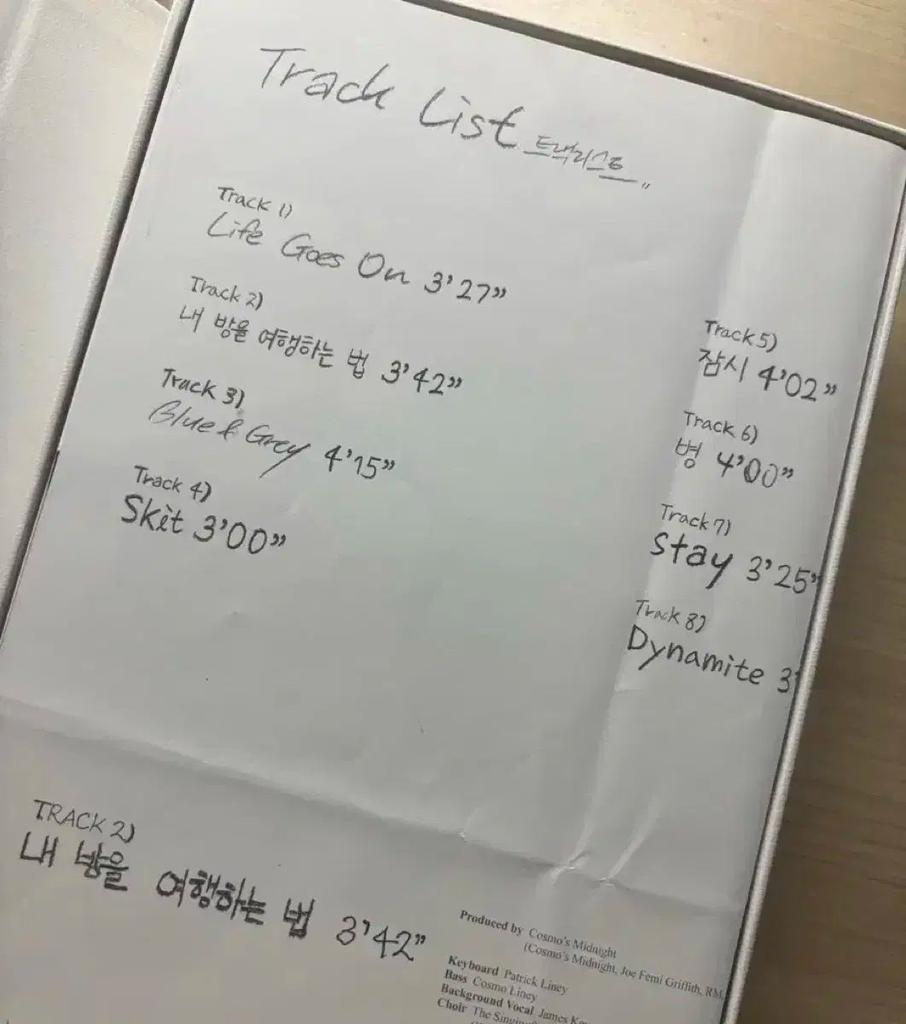 Track List 트랙리스트
Track 1)
Life Goes On 3'27"
Track 2)
내 방을 여행하는 법 3'42"
Track 3)
Blue & Grey 4'15"
Track 4)
Skit 3'00"
Track 5)
잠시 4'02"
Track 6)
병 4'00"
Track 7)
Stay 3'25"
Track 8)
Dynamite 3'
TRACK 2)
내 방을 여행하는 법 3'42"
Produced by Cosmo's Midnight
(Cosmo's Midnight, Joe Femi Griffith, RM,
Keyboard Patrick Liney
Bass Cosmo Liney
Background Vocal James
Choir The